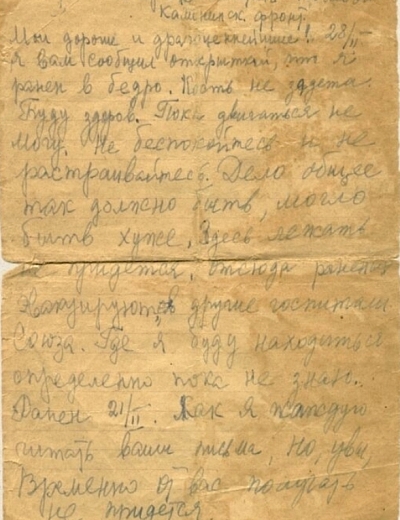 фронт.
Мои дорогие и драгоценнейшие! 28/II
Я вам сообщил открыткой, что я
ранен в бедро. Кость не задета.
Буду здоров. Пока двигаться не
могу. Не беспокойтесь и не
расстраивайтесь. Дело общее
так должно быть, могло
быть хуже. Здесь лежать
не придется, отсюда раненых
эвакуируют в другие госпитали
Союза. Где я буду находиться
определенно пока не знаю.
Ранен 21/II. Как я жажду
читать ваши письма, но, увы,
Временно от вас получать
не придется.